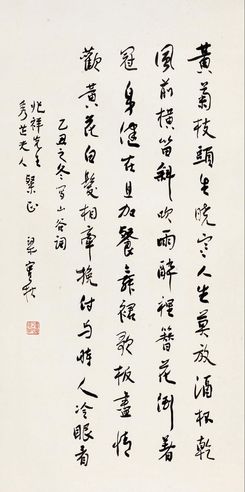 黄菊枝頭生曉寒人生莫放酒杯乾
風前橫笛斜吹雨醉裡簪花倒著
冠身健在且加餐舞裙歌板盡情
歡黃花白髮相牽挽付与時人冷眼看
乙丑之冬寫山谷詞
兆祥先生
秀芷夫人 粲正 梁實秋